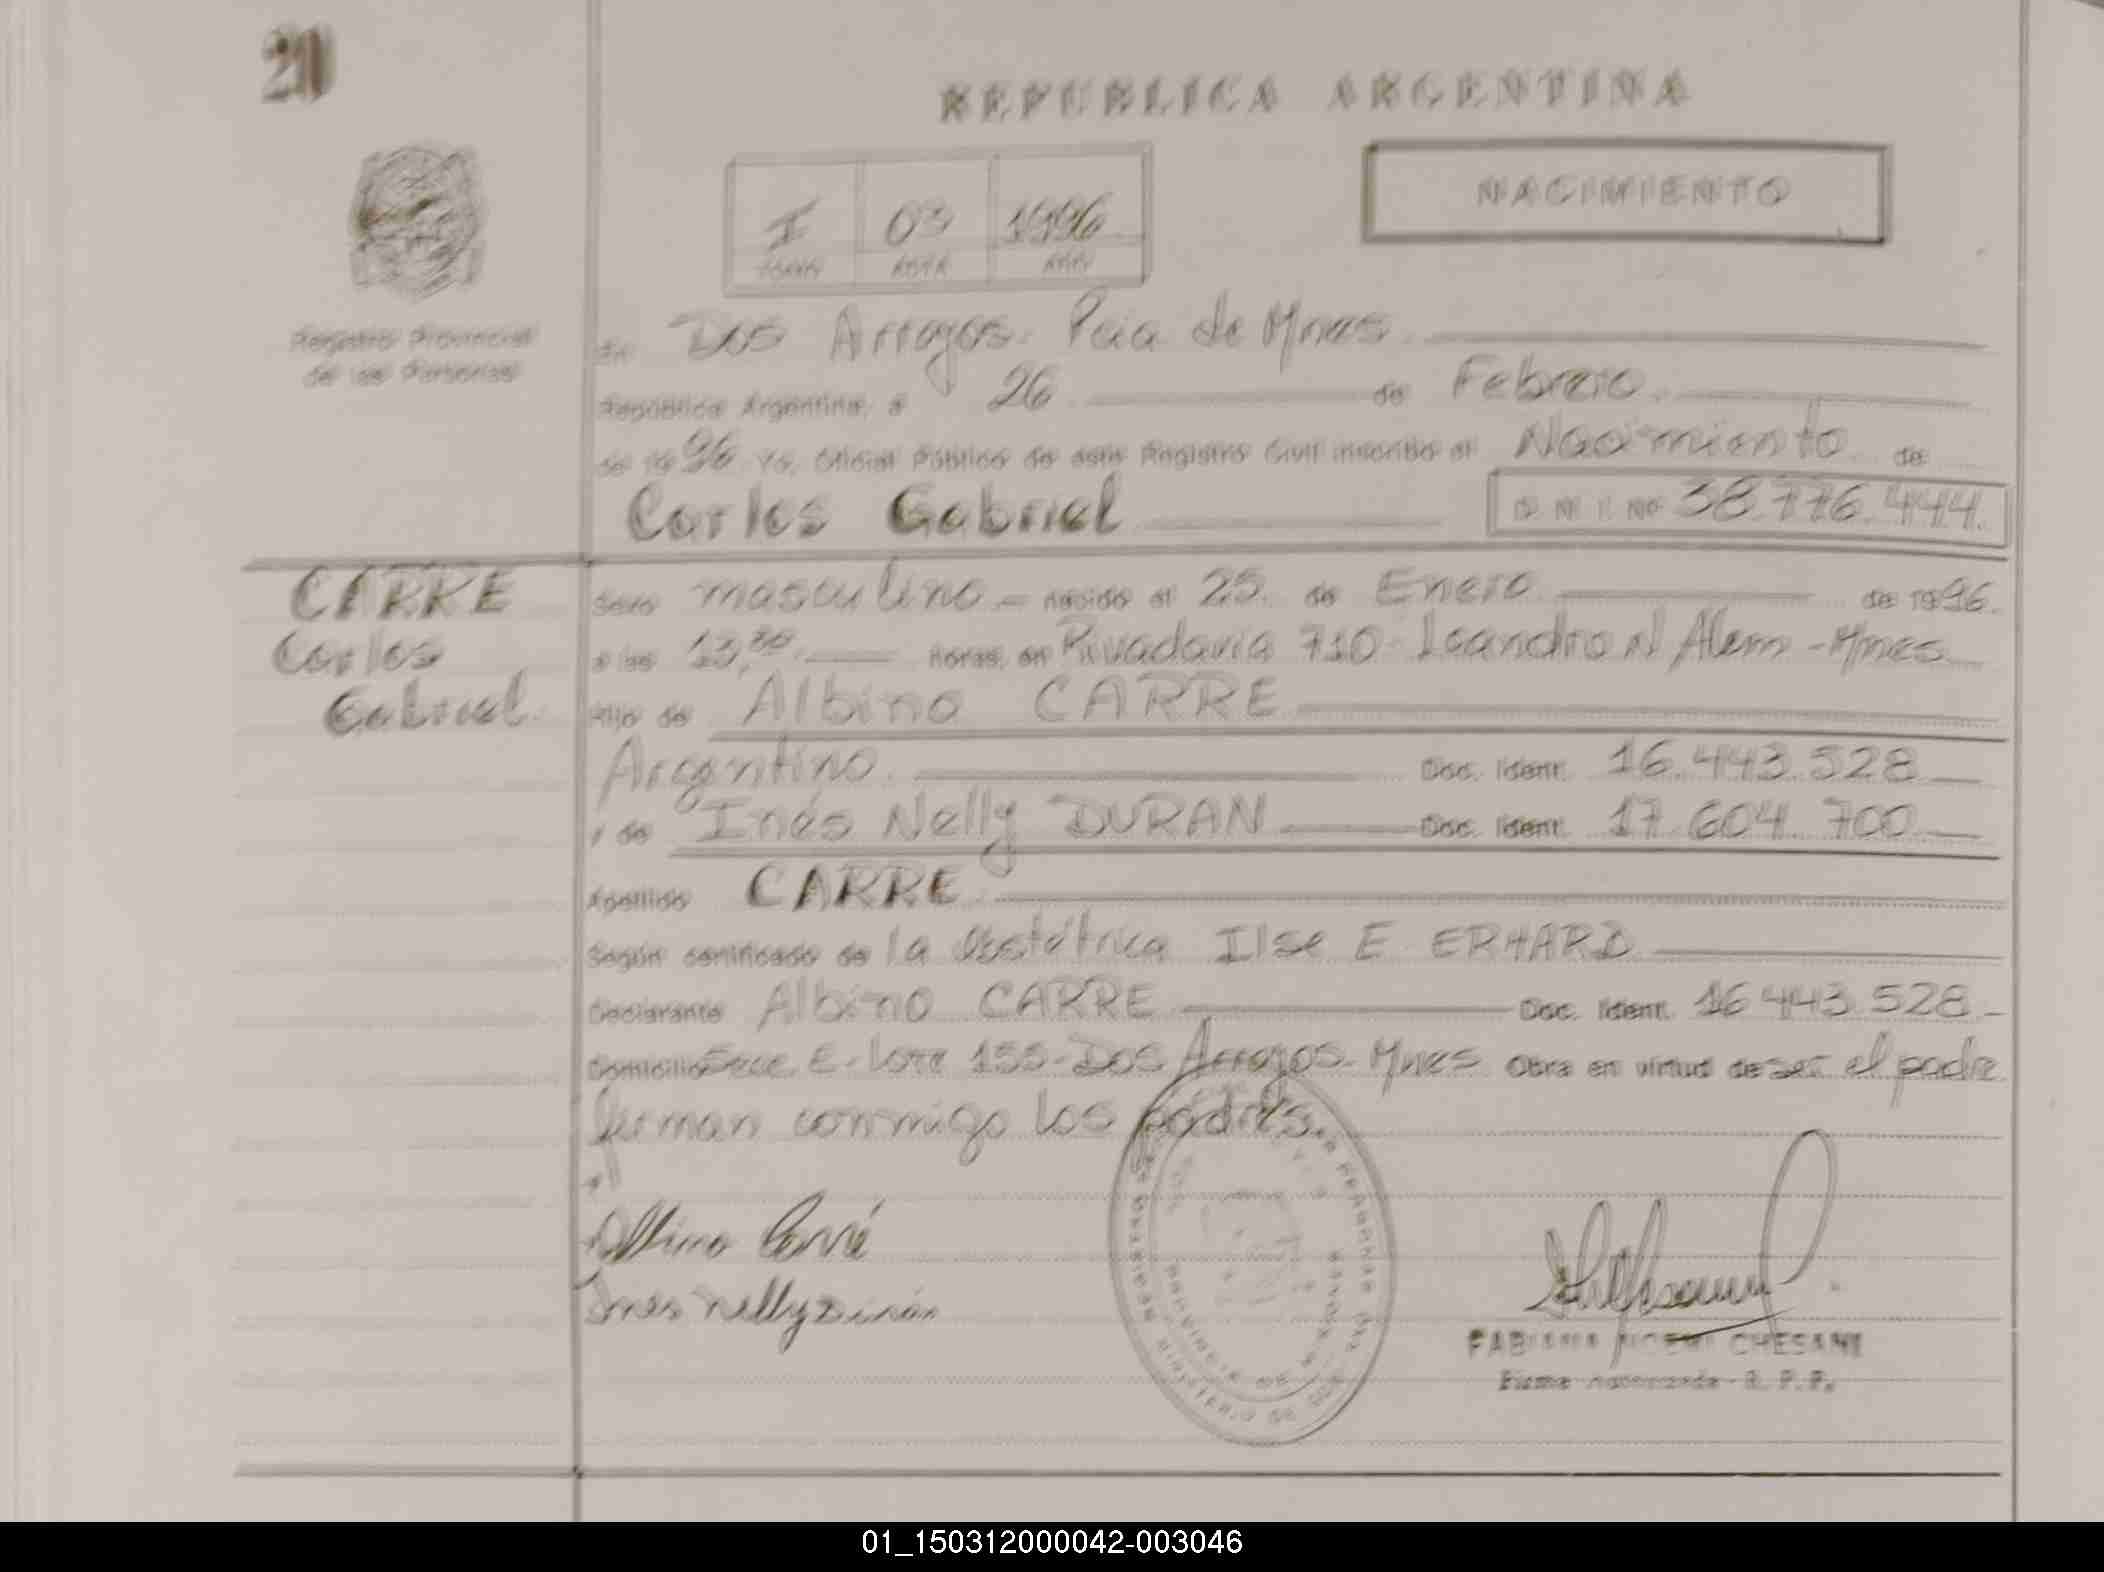 20
REPUBLICA ARGENTINA
I 03 1996
TOMO ACTA AÑO
NACIMIENTO
Registro Provincial
de las Personas
En Dos Arroyos. Pcia de Mnes.
República Argentina, a 26 de Febrero.
de 1996 Yo, Oficial Público de este Registro Civil inscribo el Nacimiento de
Carlos Gabriel D. N. I. No 38.776.444.
CARRE
Carlos
Gabriel.
Sexo masculino - nacido el 25. de Enero de 1996.
a las 13, horas, en Rivadavia 710 - Leandro N Alem - Mnes
Hijo de Albino CARRE
Argentino. Doc. Ident. 16.443.528
y de Inés Nelly DURAN Doc. Ident. 17.604.700
Apellido CARRE
Según certificado de la Obstétrica Ilse E ERHARD
Declarante Albino CARRE Doc. Ident. 16 443 528
Domicilio Secc. E - Lote 155 - Dos Arroyos - Mnes Obra en virtud de ser el padre
firman conmigo los padres.
Albino Carré
Ines Nelly Durán
FABIANA CHESANI
Firma Autorizada - R. P. P.
PROVINCIA DE MISIONES
01_150312000042-003046